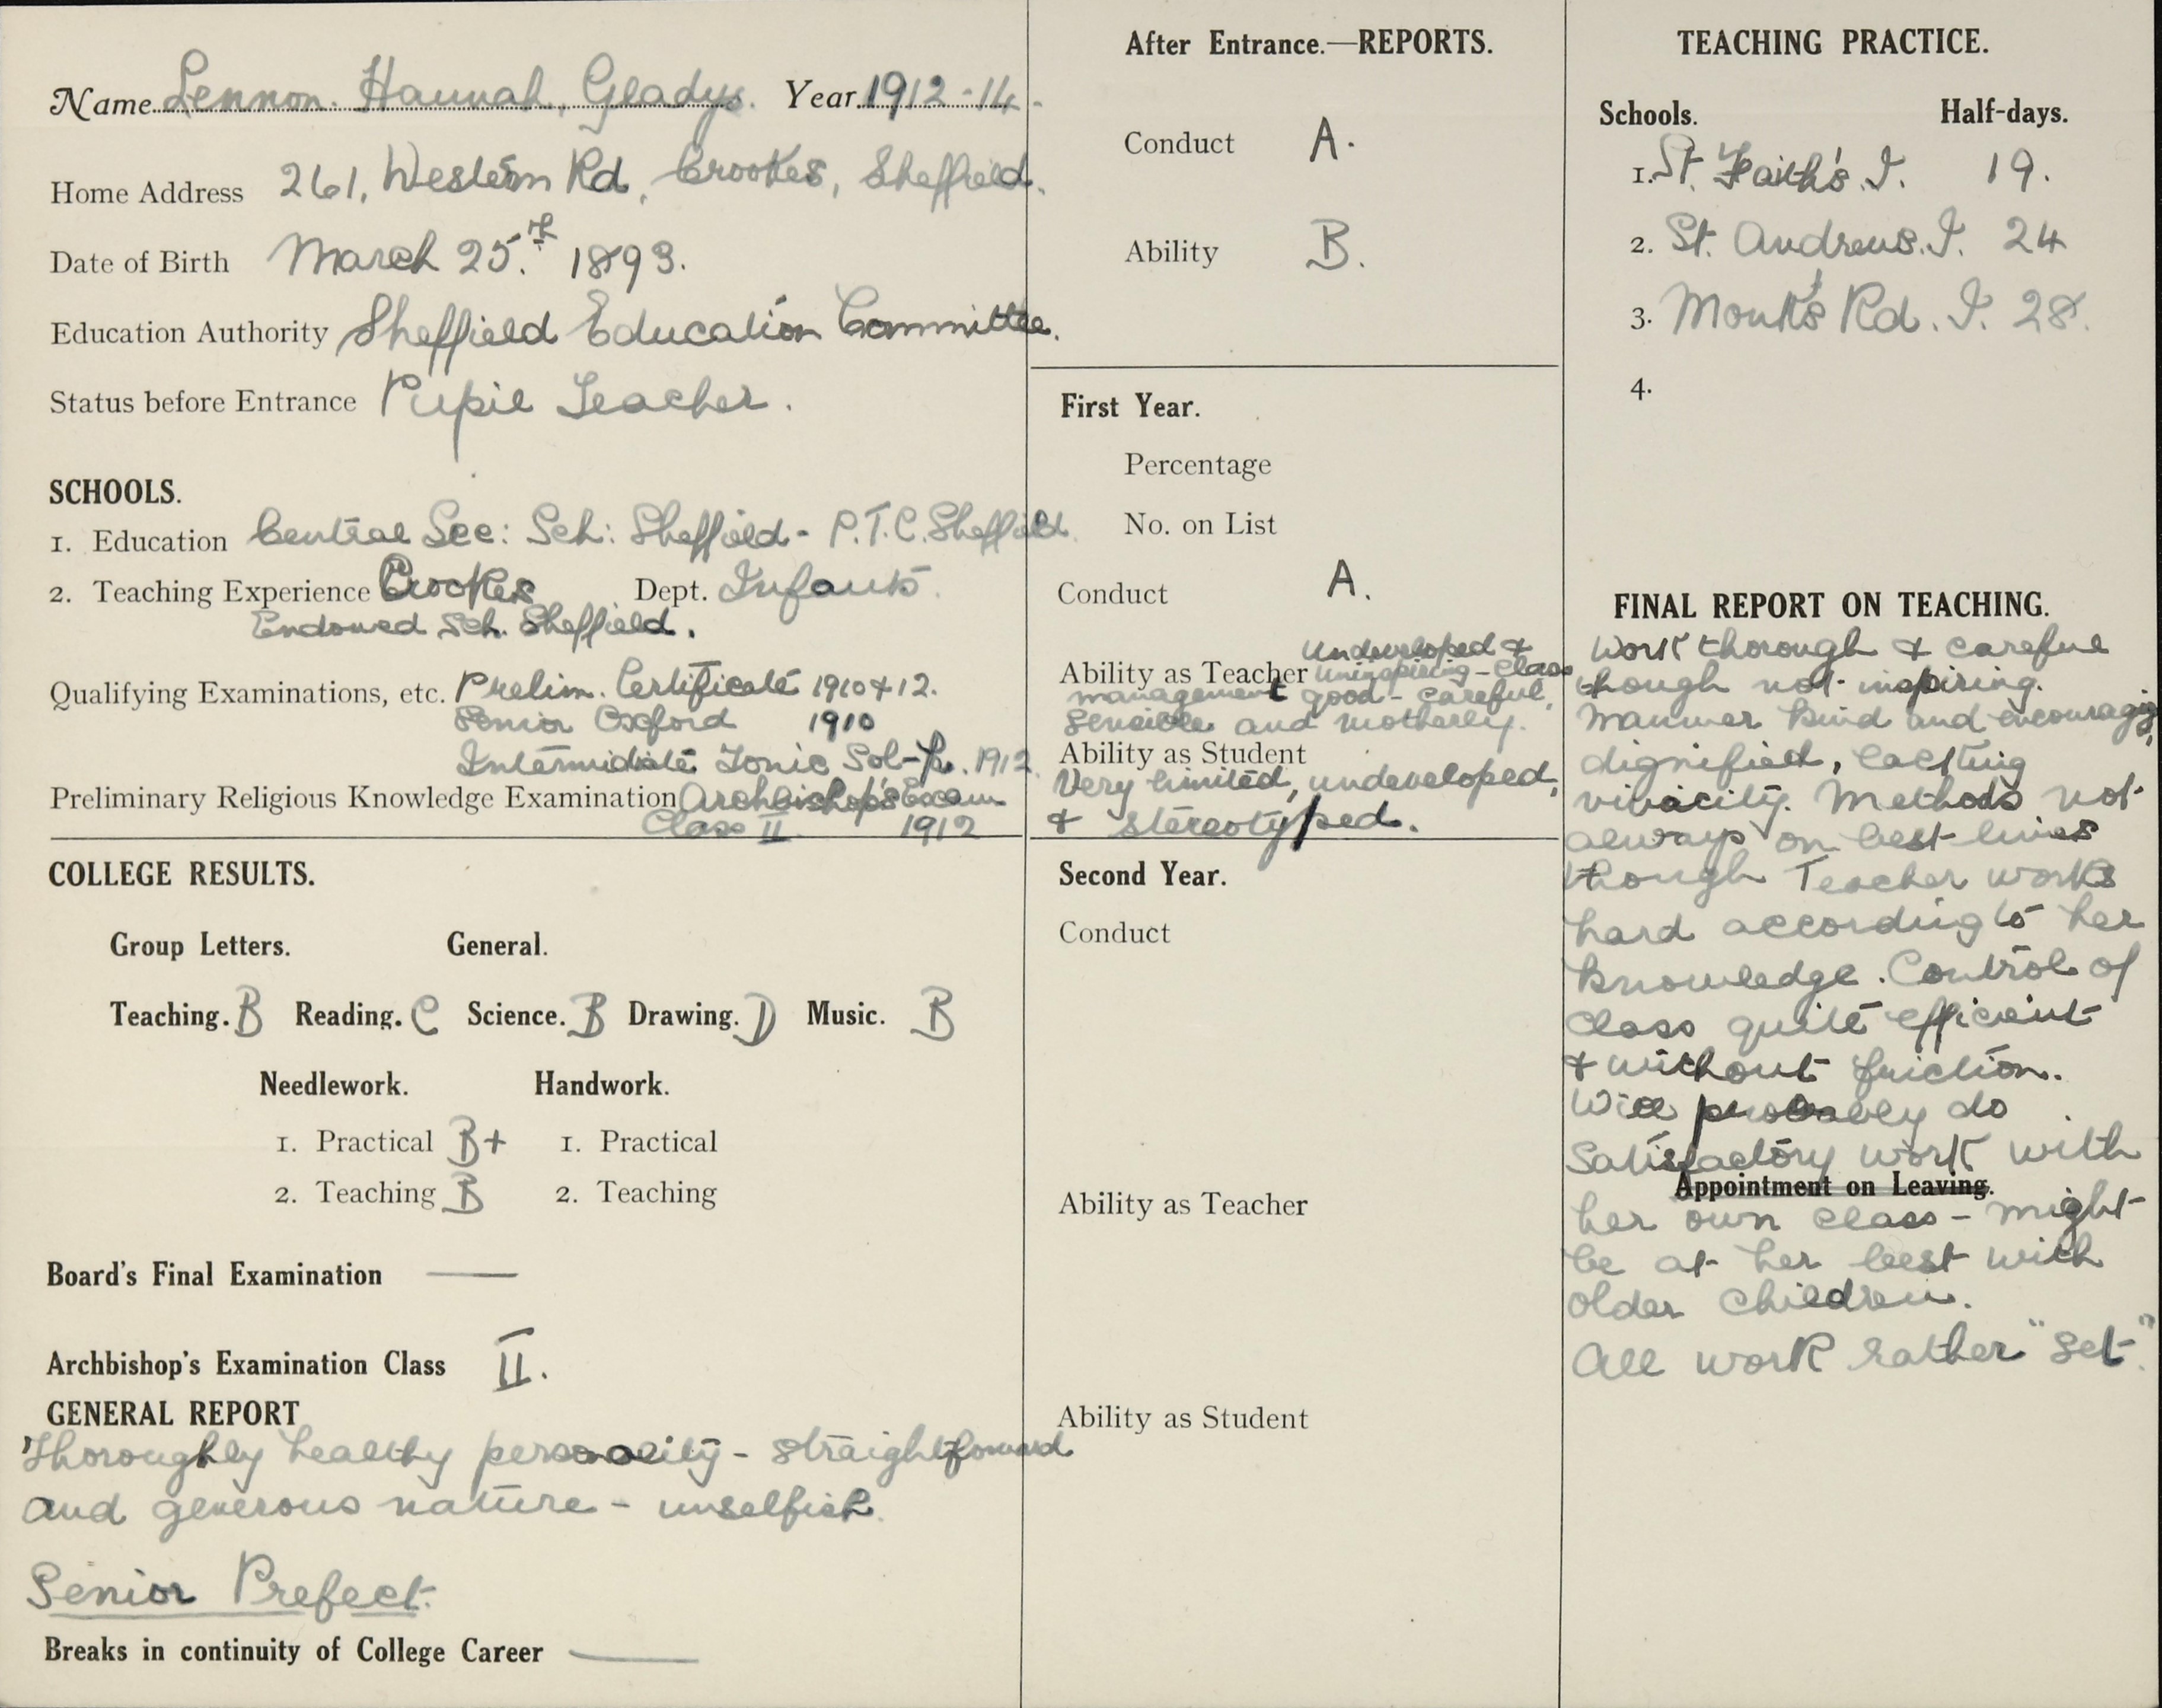 Name Lennon. Hannah, Gladys. Year 1912-14.
Home Address 261, Western Rd, Crookes, Sheffield.
Date of Birth March 25.th 1893.
Education Authority Sheffield Education Committee.
Status before Entrance Pupil Teacher.
SCHOOLS.
1. Education Central Sec: Sch: Sheffield - P.T.C. Sheffield
2. Teaching Experience Crookes Dept. Infants.
Endowed Sch. Sheffield.
Qualifying Examinations, etc. Prelim. Certificate 1910 & 12.
Senior Oxford 1910
Intermediate Tonic Sol-fa. 1912.
Preliminary Religious Knowledge Examination Archbishop's Exam
Class II. 1912
COLLEGE RESULTS.
Group Letters. General.
Teaching. B Reading. C Science. B Drawing. D Music. B
Needlework. Handwork.
1. Practical B+ 1. Practical
2. Teaching B 2. Teaching
Board's Final Examination —
Archbishop's Examination Class II.
GENERAL REPORT
Thoroughly healthy personality - straightforward
and generous nature - unselfish.
Senior Prefect.
Breaks in continuity of College Career —
After Entrance.—REPORTS.
Conduct A.
Ability B.
First Year.
Percentage
No. on List
Conduct A.
Undeveloped &
Ability as Teacher uninspiring - class
management good - careful,
sensible and motherly.
Ability as Student
Very limited, undeveloped,
& stereotyped.
Second Year.
Conduct
Ability as Teacher
Ability as Student
TEACHING PRACTICE.
Schools. Half-days.
1. St. Faith's. I. 19.
2. St. Andrews. I. 24
3. Monk's Rd. I. 28.
4.
FINAL REPORT ON TEACHING.
Work thorough & careful
though not inspiring.
Manner kind and encouraging,
dignified, lacking
vivacity. Methods not
always on best lines
though Teacher works
hard according to her
knowledge. Control of
class quite efficient
& without friction.
Will probably do
satisfactory work with
Appointment on Leaving.
her own class - might
be at her best with
older children.
All work rather "set".